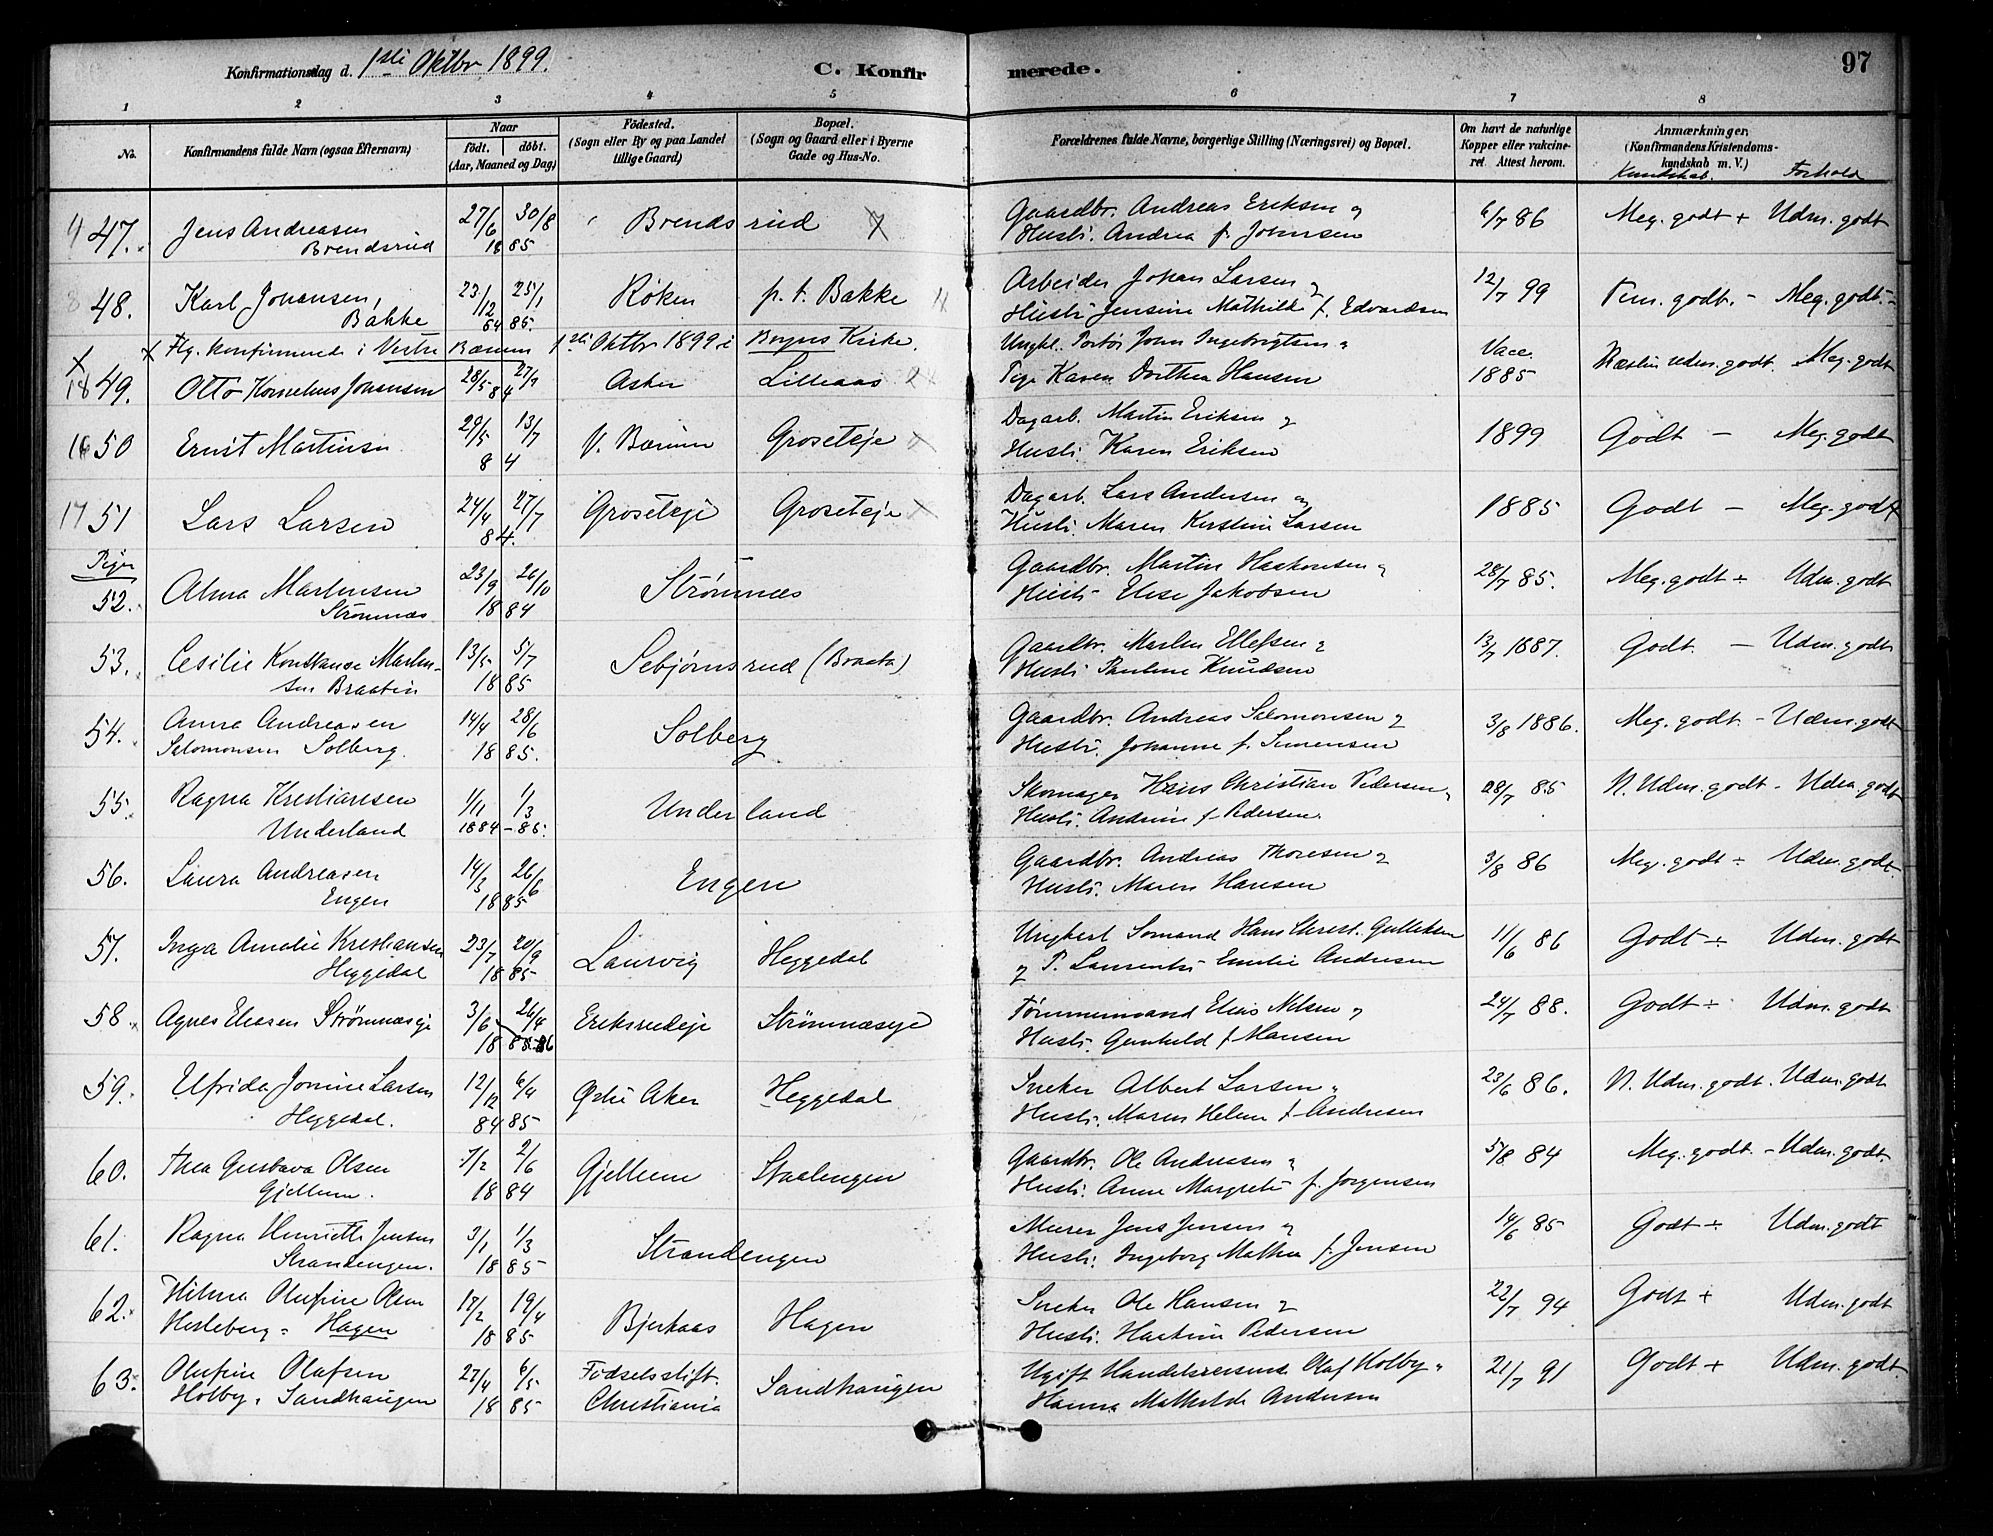 Konfirmationsdag d. 1ste Oktbr 1899. C. Konfirmerede. 97
1 2 3 4 5 6 7 8
No. Konfirmandens fulde Navn (ogsaa Efternavn) Naar födt. döbt. (Aar, Maaned og Dag) Födested. (Sogn eller By og paa Landet tillige Gaard) Bopæl. (Sogn og Gaard eller i Byerne Gade og Hus-No.) Forældrenes fulde Navne, borgerlige Stilling (Næringsvei) og Bopæl. Om havt de naturlige Kopper eller vaccineret. Attest herom. Anmærkninger. (Konfirmandens Kristendomskundskab m. V.)
Kundskab. Forhold
47. Jens Andreasen 27/6 30/8 Brendsrud Gaardbr. Andreas Eriksen og 6/7 86 Meg. godt + Udm. godt
Brendsrud 18 85 Hustr. Andrea f. Johnsen
48. Karl Johansen, 23/12 25/1 Røken p. t. Bakke Arbeider Johan Larsen og 12/7 99 Tem. godt. - Meg. godt.
Bakke 84 85. Hustr. Jensine Mathilde f. Edvardsen
x Flg. konfirmerede i Vestre Bærum 1ste Oktbr 1899 i Bryns Kirke. Ungkl. John Ingebrigtsen Vacc.
49. Otto Kornelius Johansen 28/5 27/7 84 Asker Lilleaas Pige Karen Dorthea Hansen 1885 Næsten udm. godt. Meg. godt
16 50 Ernst Martinsen 29/5 13/7 V. Bærum Groseteje Dagarb. Martin Eriksen og 1899 Godt - Meg. godt
8 4 Hustr. Karen Eriksen
17 51 Lars Larsen 24/4 27/7 Groseteje Groseteje Dagarb. Lars Andersen og 1885 Godt - Meg. godt
84. Hustr. Maren Kirstine Larsen
Piger
52. Alma Martinsen 23/9 26/10 Strømnæs Gaardbr. Martin Haakonsen og 28/7 85. Meg. godt + Udm. godt
Strømnæs 18 84 Hustr. Elise Jakobsen
53. Cesilie Konstanse Martin- 13/5 5/7 Sebjørnsrud (Braata) Gaardbr. Martin Ellefsen og 13/7 1887. Godt. - Udm. godt
sen Braaten 18 85 Hustr. Pauline Knudsen
54. Anna Andreasen 14/4 28/6 Solberg Gaardbr. Andreas Salomonsen og 3/8 1886. Meg. godt. - Udm. godt
Salomonsen Solberg. 18 85. Hustr. Johanne f. Simensen
55. Ragna Kristiansen 1/11 1/3 Underland Skomager Hans Christian Pedersen 28/7 85 N. Udm. godt - Udm. godt
Underland 1884 - 85. Hustr. Andrine f. Pedersen.
56. Laura Andreasen 14/3 26/6 Engen Gaardbr. Andreas Thoresen og 3/8 86 Meg. godt + Udm. godt.
Engen 18 85 Hustr. Maren Hansen
57. Inga Amalie Kristiansen 23/7 20/9 Laurvig Heggedal Ungkarl Sømand Hans Christ. Gulliksen 11/6 86 Godt + Udm. godt
Heggedal 18 85 og P. Laurentse Emilie Andresen
58. Agnes Eliasen Strømnæseje 3/6 26/4 Eriksrudeje Strømnæseje Tømmermand Elias Nilsen og 24/7 88. Godt + Udm. godt
18 85 86 Hustr. Gunhild f. Hansen
59. Elfrida Jonine Larsen 12/12 6/4 Østre Aker Heggedal Sneker Albert Larsen 23/6 86. N. Udm. godt. Udm. godt
Heggedal. 84 85 Hustr. Maren Helene f. Andresen
60. Thea Gustava Olsen 7/2 2/6 Gjellum Staalengen Gaardbr. Ole Andreasen 5/8 84 Meg. godt. - Udm. godt.
Gjellum. 18 84 Hustr. Anne Margrete f. Jørgensen
61. Ragna Henriette Jensen 3/1 1/3 Strandengen Murer Jens Jensen og 14/6 85 Godt + Udm. godt
Strandengen. 18 85 Hustr. Ingeborg Mathea f. Jensen
62. Hilma Olufine Olsen 17/2 19/4 Bjerkaas Hagen Sneker Ole Hansen og 22/7 94 Godt + Udm. godt
Hesleberg - Hagen 18 85 Hustr. Pedersen
63. Olufine Olafsen 27/4 6/5 Fødselsstift. Sandhaugen Ugift Handelsreisende Olaf Holby 21/7 91 Godt + Udm. godt.
Holby, Sandhaugen 18 85 Christiania Hanna Mathilde Andersen